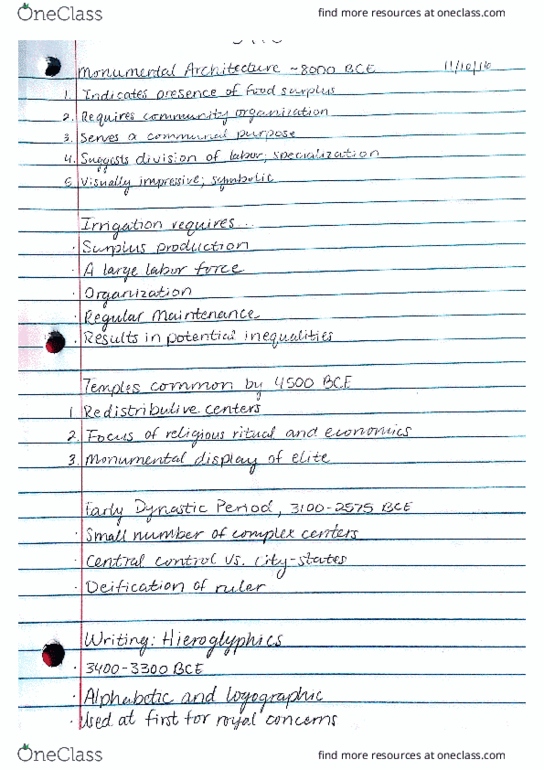 OneClass find more resources at oneclass.com
Monumental Architecture ~8000 BCE 11/10/16
1. Indicates presence of food surplus
2. Requires community organization
3. Serves a communal purpose
4. Suggests division of labor; specialization
5. Visually impressive; symbolic
Irrigation requires...
· Surplus production
· A large labor force
· Organization
· Regular Maintenance
· Results in potential inequalities
Temples common by 4500 BCE
1. Redistributive centers
2. Focus of religious ritual and economics
3. Monumental display of elite
Early Dynastic Period, 3100-2575 BCE
· Small number of complex centers
· Central control vs. city-states
· Deification of ruler
Writing: Hieroglyphics
· 3400-3300 BCE
· Alphabetic and logographic
· Used at first for royal concerns
OneClass find more resources at oneclass.com